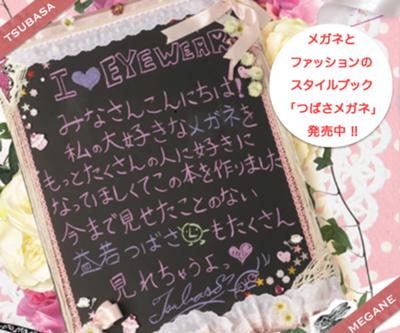 TSUBASA
I ♥ EYEWEAR
みなさんこんにちは!
私の大好きなメガネを
もっとたくさんの人に好きに
なってほしくてこの本を作りました
今まで見せたことのない
益若つばさもたくさん
見れちゃうよ♥
Tsubasa
メガネと
ファッションの
スタイルブック
「つばさメガネ」
発売中 !!
MEGANE